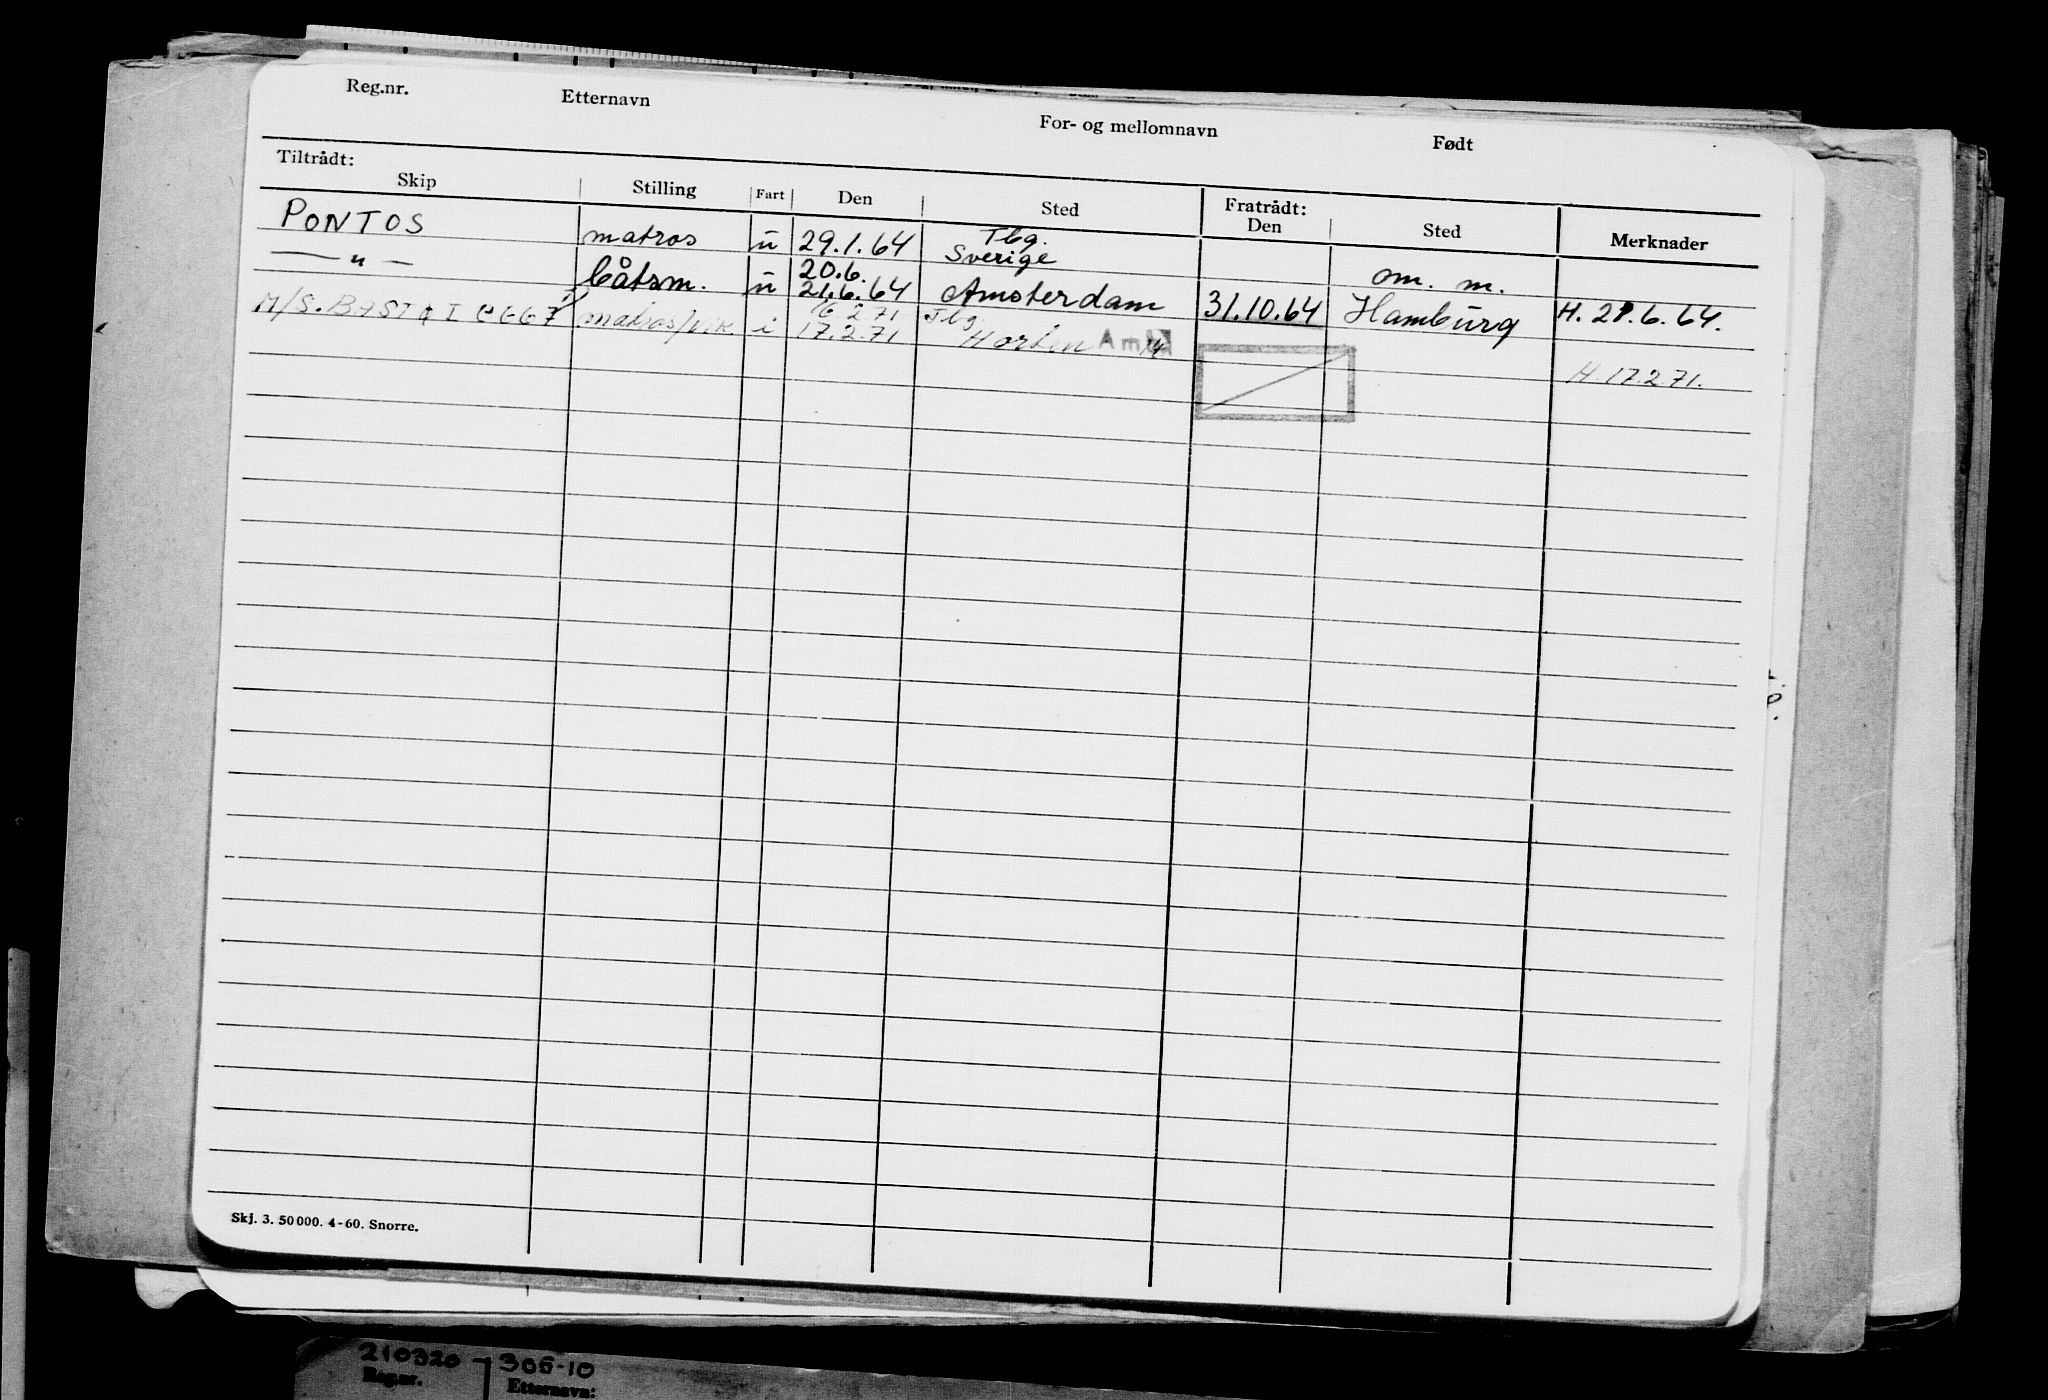 Reg.nr. Etternavn For- og mellomnavn Født
Tiltrådt:
Skip Stilling Fart Den Sted Fratrådt: Den Sted Merknader
PONTOS matros u 29.1.64 Tbg. Sverige
— " — båtsm. u 20.6. 21.6.64 Amsterdam 31.10.64 om. m. Hamburg H. 21.6.64.
M/S. BASTØ I matros/ i 16.2.71 17.2.71 Tbg. Horten Am
H. 17.2.71.
Skj. 3. 50000. 4-60. Snorre.
210320 - 305-10
Reg.nr. Etternavn: